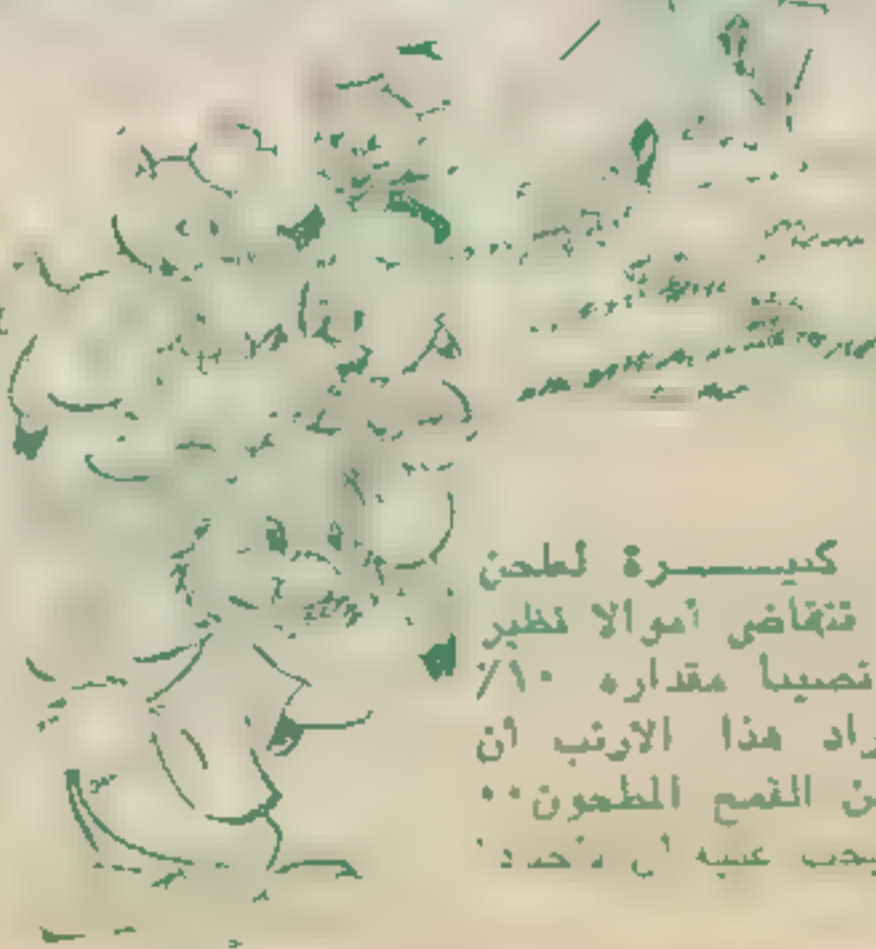 كبيـــــرة لطحن
تتقاضى أموالا نظير
نصيبا مقداره ١٠٪
راد هذا الأرنب أن
ن القمح المطحون٠٠